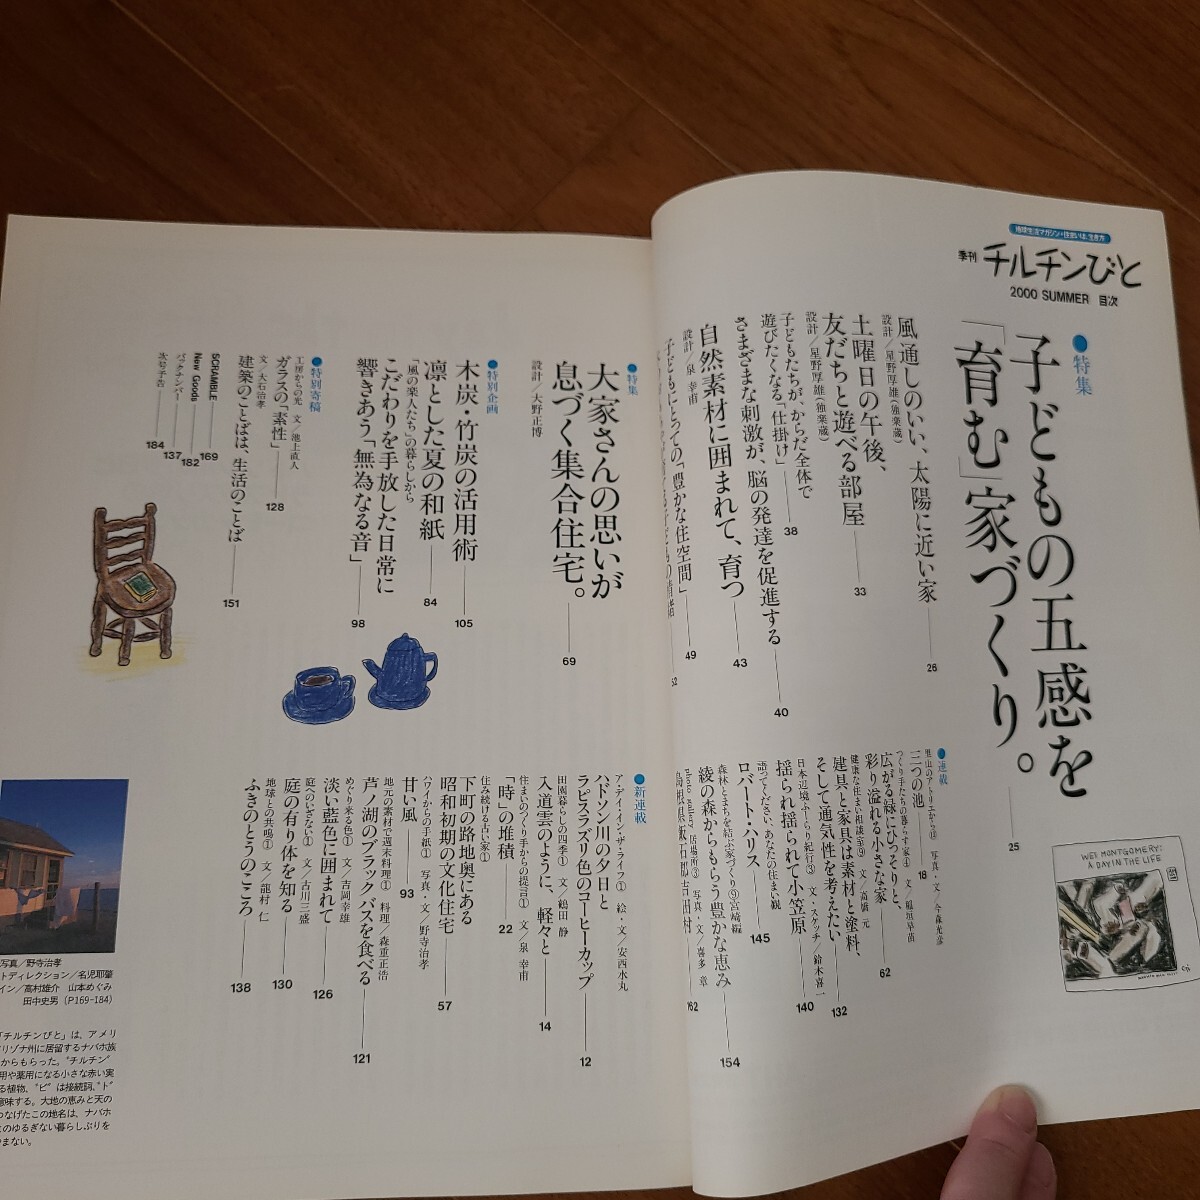 地球生活マガジン・住まいは、生き方
季刊 チルチンびと
2000 SUMMER 目次
●特集
子どもの五感を
「育む」家づくり。 25
風通しのいい、太陽に近い家 26
設計/星野厚雄(独楽蔵)
土曜日の午後、
友だちと遊べる部屋 33
設計/星野厚雄(独楽蔵)
子どもたちが、からだ全体で
遊びたくなる「仕掛け」 38
さまざまな刺激が、脳の発達を促進する 40
自然素材に囲まれて、育つ 43
設計/泉 幸甫
子どもにとっての「豊かな住空間」 49
52
●特集
大家さんの思いが
息づく集合住宅。 69
設計/大野正博
●特別企画
木炭・竹炭の活用術 105
凛とした夏の和紙 84
「風の楽人たち」の暮らしから
こだわりを手放した日常に
響きあう「無為なる音」 98
●特別寄稿
工房からの光 文/池上直人
ガラスの「素性」 128
文/大石治孝
建築のことばは、生活のことば 151
SCRAMBLE 169
New Goods 182
バックナンバー 137
次号予告 184
●連載
里山のアトリエから⑬ 写真・文/今森光彦
三つの池 18
つくり手たちの暮らす家④ 文/稲垣早苗
広がる緑にひっそりと、
彩り溢れる小さな家 62
健康な住まい相談室⑨ 文/高橋 元
建具と家具は素材と塗料、
そして通気性を考えたい 132
日本辺境ふーらり紀行③ 文・スケッチ/鈴木喜一
揺られ揺られて小笠原 140
語ってください、あなたの住まい観
ロバート・ハリス 145
森林とまちを結ぶ家づくり⑨宮崎編
綾の森からもらう豊かな恵み 154
photo gallery 居場所③ 写真・文/喜多 章
島根県飯石郡吉田村 162
●新連載
ア・デイ・イン・ザ・ライフ① 絵・文/安西水丸
ハドソン川の夕日と
ラピスラズリ色のコーヒーカップ 12
田園暮らしの四季① 文/鶴田 静
入道雲のように、軽々と 14
住まいのつくり手からの提言① 文/泉 幸甫
「時」の堆積 22
住み続ける古い家①
下町の路地奥にある
昭和初期の文化住宅 57
ハワイからの手紙① 写真・文/野寺治孝
甘い風 93
地元の素材で週末料理① 料理/森重正浩
芦ノ湖のブラックバスを食べる 121
めぐり来る色① 文/吉岡幸雄
淡い藍色に囲まれて 126
庭へのいざない① 文/古川三盛
庭の有り体を知る 130
地球との共鳴① 文/龍村 仁
ふきのとうのこころ 138
WES MONTGOMERY:
A DAY IN THE LIFE
写真/野寺治孝
トディレクション/名児耶肇
イン/高村雄介 山本めぐみ
田中史男(P169-184)
「チルチンびと」は、アメリ
リゾナ州に居留するナバホ族
からもらった。"チルチン"
用や薬用になる小さな赤い実
る植物、"ビ"は接続詞、"ト"
意味する。大地の恵みと天の
つなげたこの地名は、ナバホ
とのゆるぎない暮らしぶりを
まない。